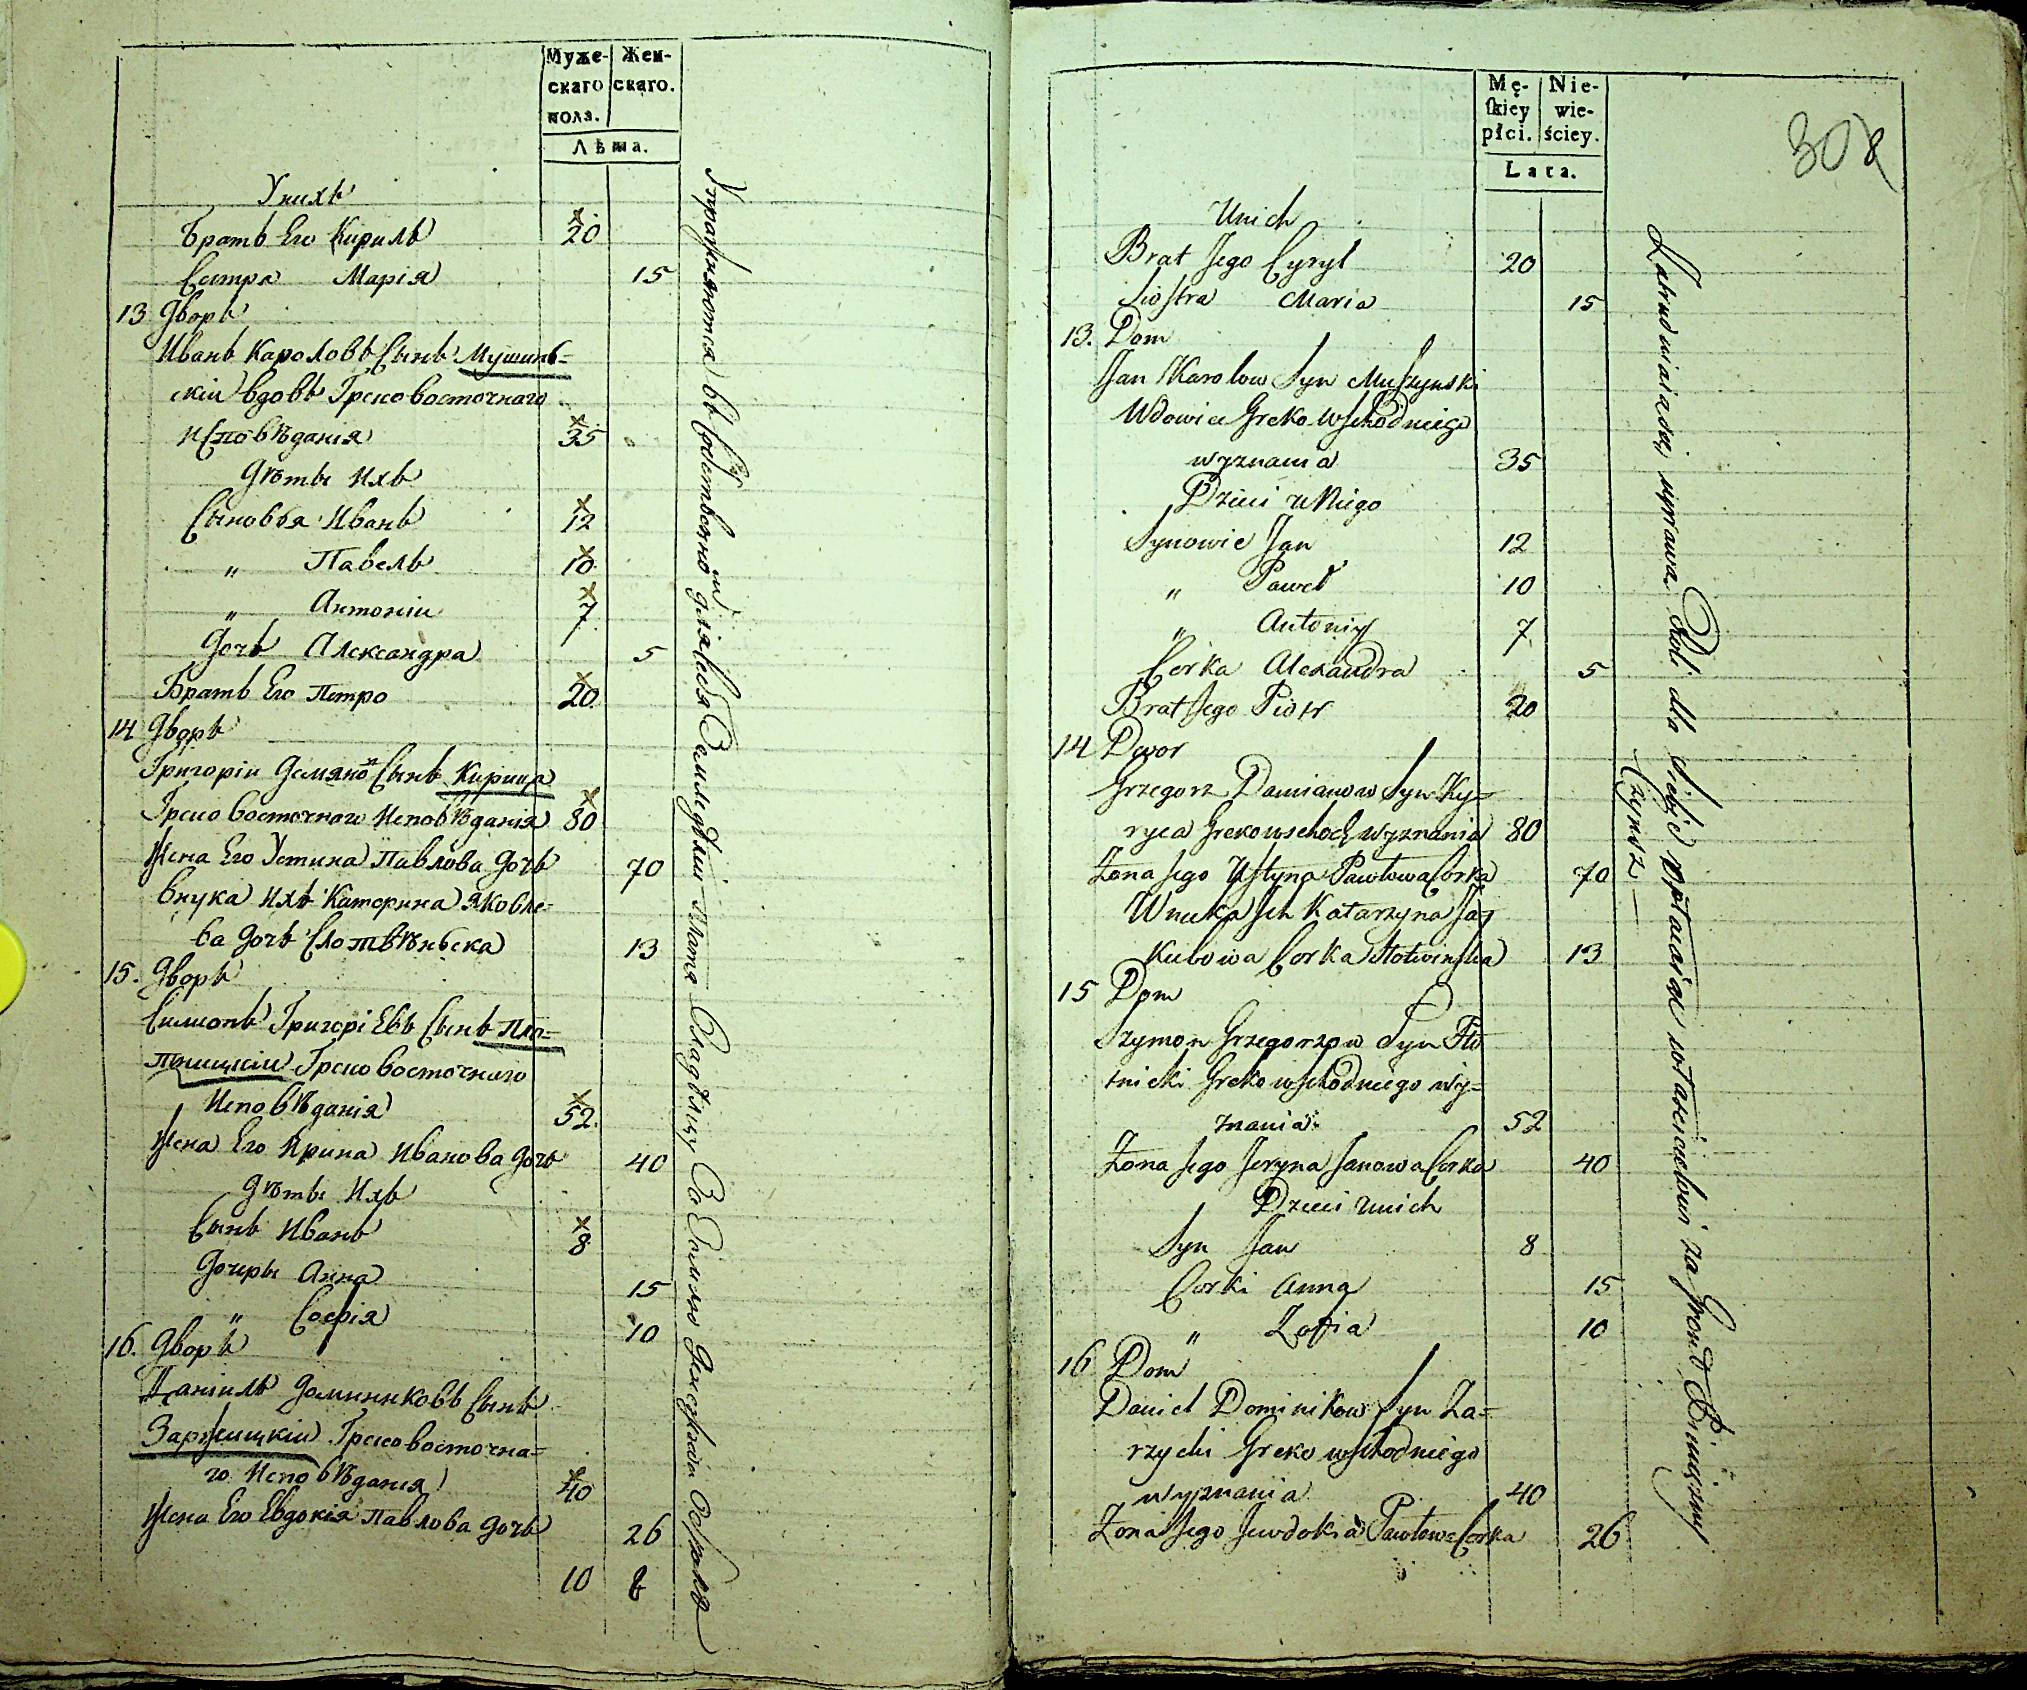 Муже-
скаго
пола.
Жен-
скаго.
Лѣта.
Унихъ
Братъ Его Кирилъ 20
Сестра Марія 15
13 Дворъ
Иванъ Кароловъ Сынъ Мушинь=
скіи вдовъ Греко восточнаго
исповѣданія 35
Дѣты ихъ
Сыновья Иванъ 12
„ Павелъ 10
„ Антоніи 7
Дочь Александра 5
Братъ Его Петро 20
14 Дворъ
Григоріи Демяновъ Сынъ Кирица
Греко восточного Исповѣданія 80
Жена Его Устина Павлова дочь 70
Внука Ихъ Катерина Яковле=
ва дочь Слотвѣньска 13
15. Дворъ
Симонъ Григоріевъ Сынъ Пло=
тницкіи Греко восточного
Исповѣданія 52.
Жена Его Ирина Иванова дочь 40
Дѣты Ихъ
Сынъ Иванъ 8
Дочеры Анна 15
„ Софія 10
16. Дворъ
Даніилъ Доминиковъ Сынъ
Заржицкіи Греко восточна=
го Исповѣданія 40
Жена Его Евдокія Павлова дочь 26
10 8
Упражняются въ Собственно для себя Земледѣлии Платя Владѣлцу За Землю Денежный Оброкъ
Mę-
skiey
płci.
Nie-
wie-
ściey.
Lata.
308
Unich
Brat Jego Cyryl 20
Siostra Maria 15
13. Dom
Jan Karolow Syn Muszynski
Wdowiec Greko Wschodniego
wyznania 35
Dzieci u Niego
Synowie Jan 12
„ Paweł 10
„ Antoniy 7
Corka Alexandra 5
Brat Jego Piotr 20
14 Dwor
Grzegorz Damianow Syn Ky=
ryca Grekowschod. wyznania 80
Żona Jego Ustyna Pawłowa Corka 70
Wnuka Ich Katarzyna Ja=
kubowa Corka Słotwinska 13
15 Dom
Szymon Grzegorzow Syn Pło
tnicki Greko wschodniego wy=
znania 52
Żona Jego Jeryna Janowa Corka 40
Dzieci unich
Syn Jan 8
Corki Anna 15
„ Zofia 10
16 Dom
Daniel Dominikow Syn Za=
rzycki Greko wschodniego
wyznania 40
Żona Jego Jewdokia Pawłowa Corka 26
Zatrudniaią się uprawą Roli dla siebie opłacaiąc włascicielowi za Grunt Pieniężny
Czynsz —